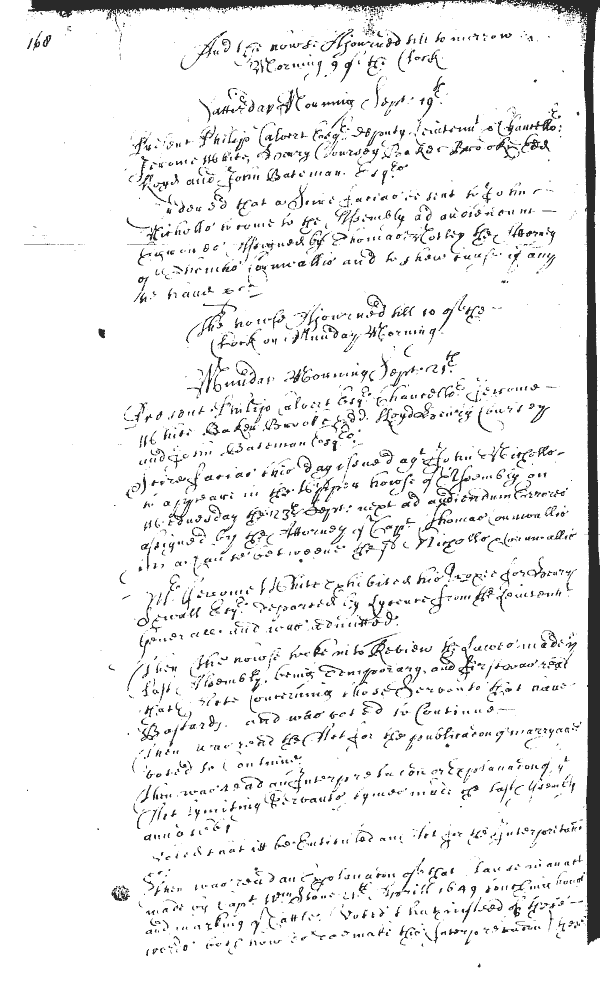 168
And the howse Adjourned till to morrow
Morning 9 of the Clock
Satterday Morning Sept: 19th
Present Philip Calvert Esqr deputy Lieutent & Chancellor
Jerome White, Henry Coursey Baker Brooke Edd
Lloyd and John Bateman Esqrs
Ordered that a Scire facias be sent to John
Nicholls to come to the Assembly ad audiendum
Errores Assigned by Thomas Notley the Attorney
of Thomas Cornwallis and to shew cause if any
he have &c
The howse Adjourned till 10 of the
Clock on Munday Morning
Munday Morning Sept: 21th
Present Philip Calvert Esqr Chancellor Jerome
White Baker Brooke Edd. Lloyd Henry Coursey
and John Bateman Esqrs
Scire facias this day issued agt John Nicholls
to appeare in the Upper howse of Assembly on
Wednesday the 23th Sept: next ad audiendum Errores
assigned by the Attorney of Capt Thomas Cornwallis
in a suite betweene the sd Nicholls & Cornwallis
Mr Jerome White exhibited his Proxie for Henry
Sewall Esqr departed by Lycence from the Lieutennt
Generall and was admitted
Then the howse tooke into Review the Lawes made
last Assembly, being Temporary and first was read
that Act Concerning those Servants that have
Bastards and was voted to Continue
Then was read the Act for the publicacon of marryages
voted to Continue
Then was read an Interpretacon or Explanacon of
Act lymiting Servants tymes made the last Assembly
anno 1661
Voted that it be Entituled an Act for the Interpretacon
&c
Then was read an Explanacon of that Clause in an act
made by Capt Wm Stone Aprill 1649 touching hoggs
and marking of Cattle Voted that insteed of these
words